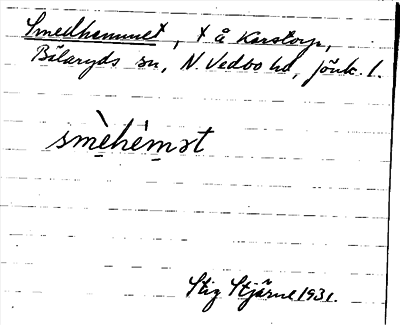 Smedhemmet, t å Karstorp,
Bälaryds sn, N. Vedbo hd, Jönk. l.
smèhèmət
Stig Stjärne 1931.